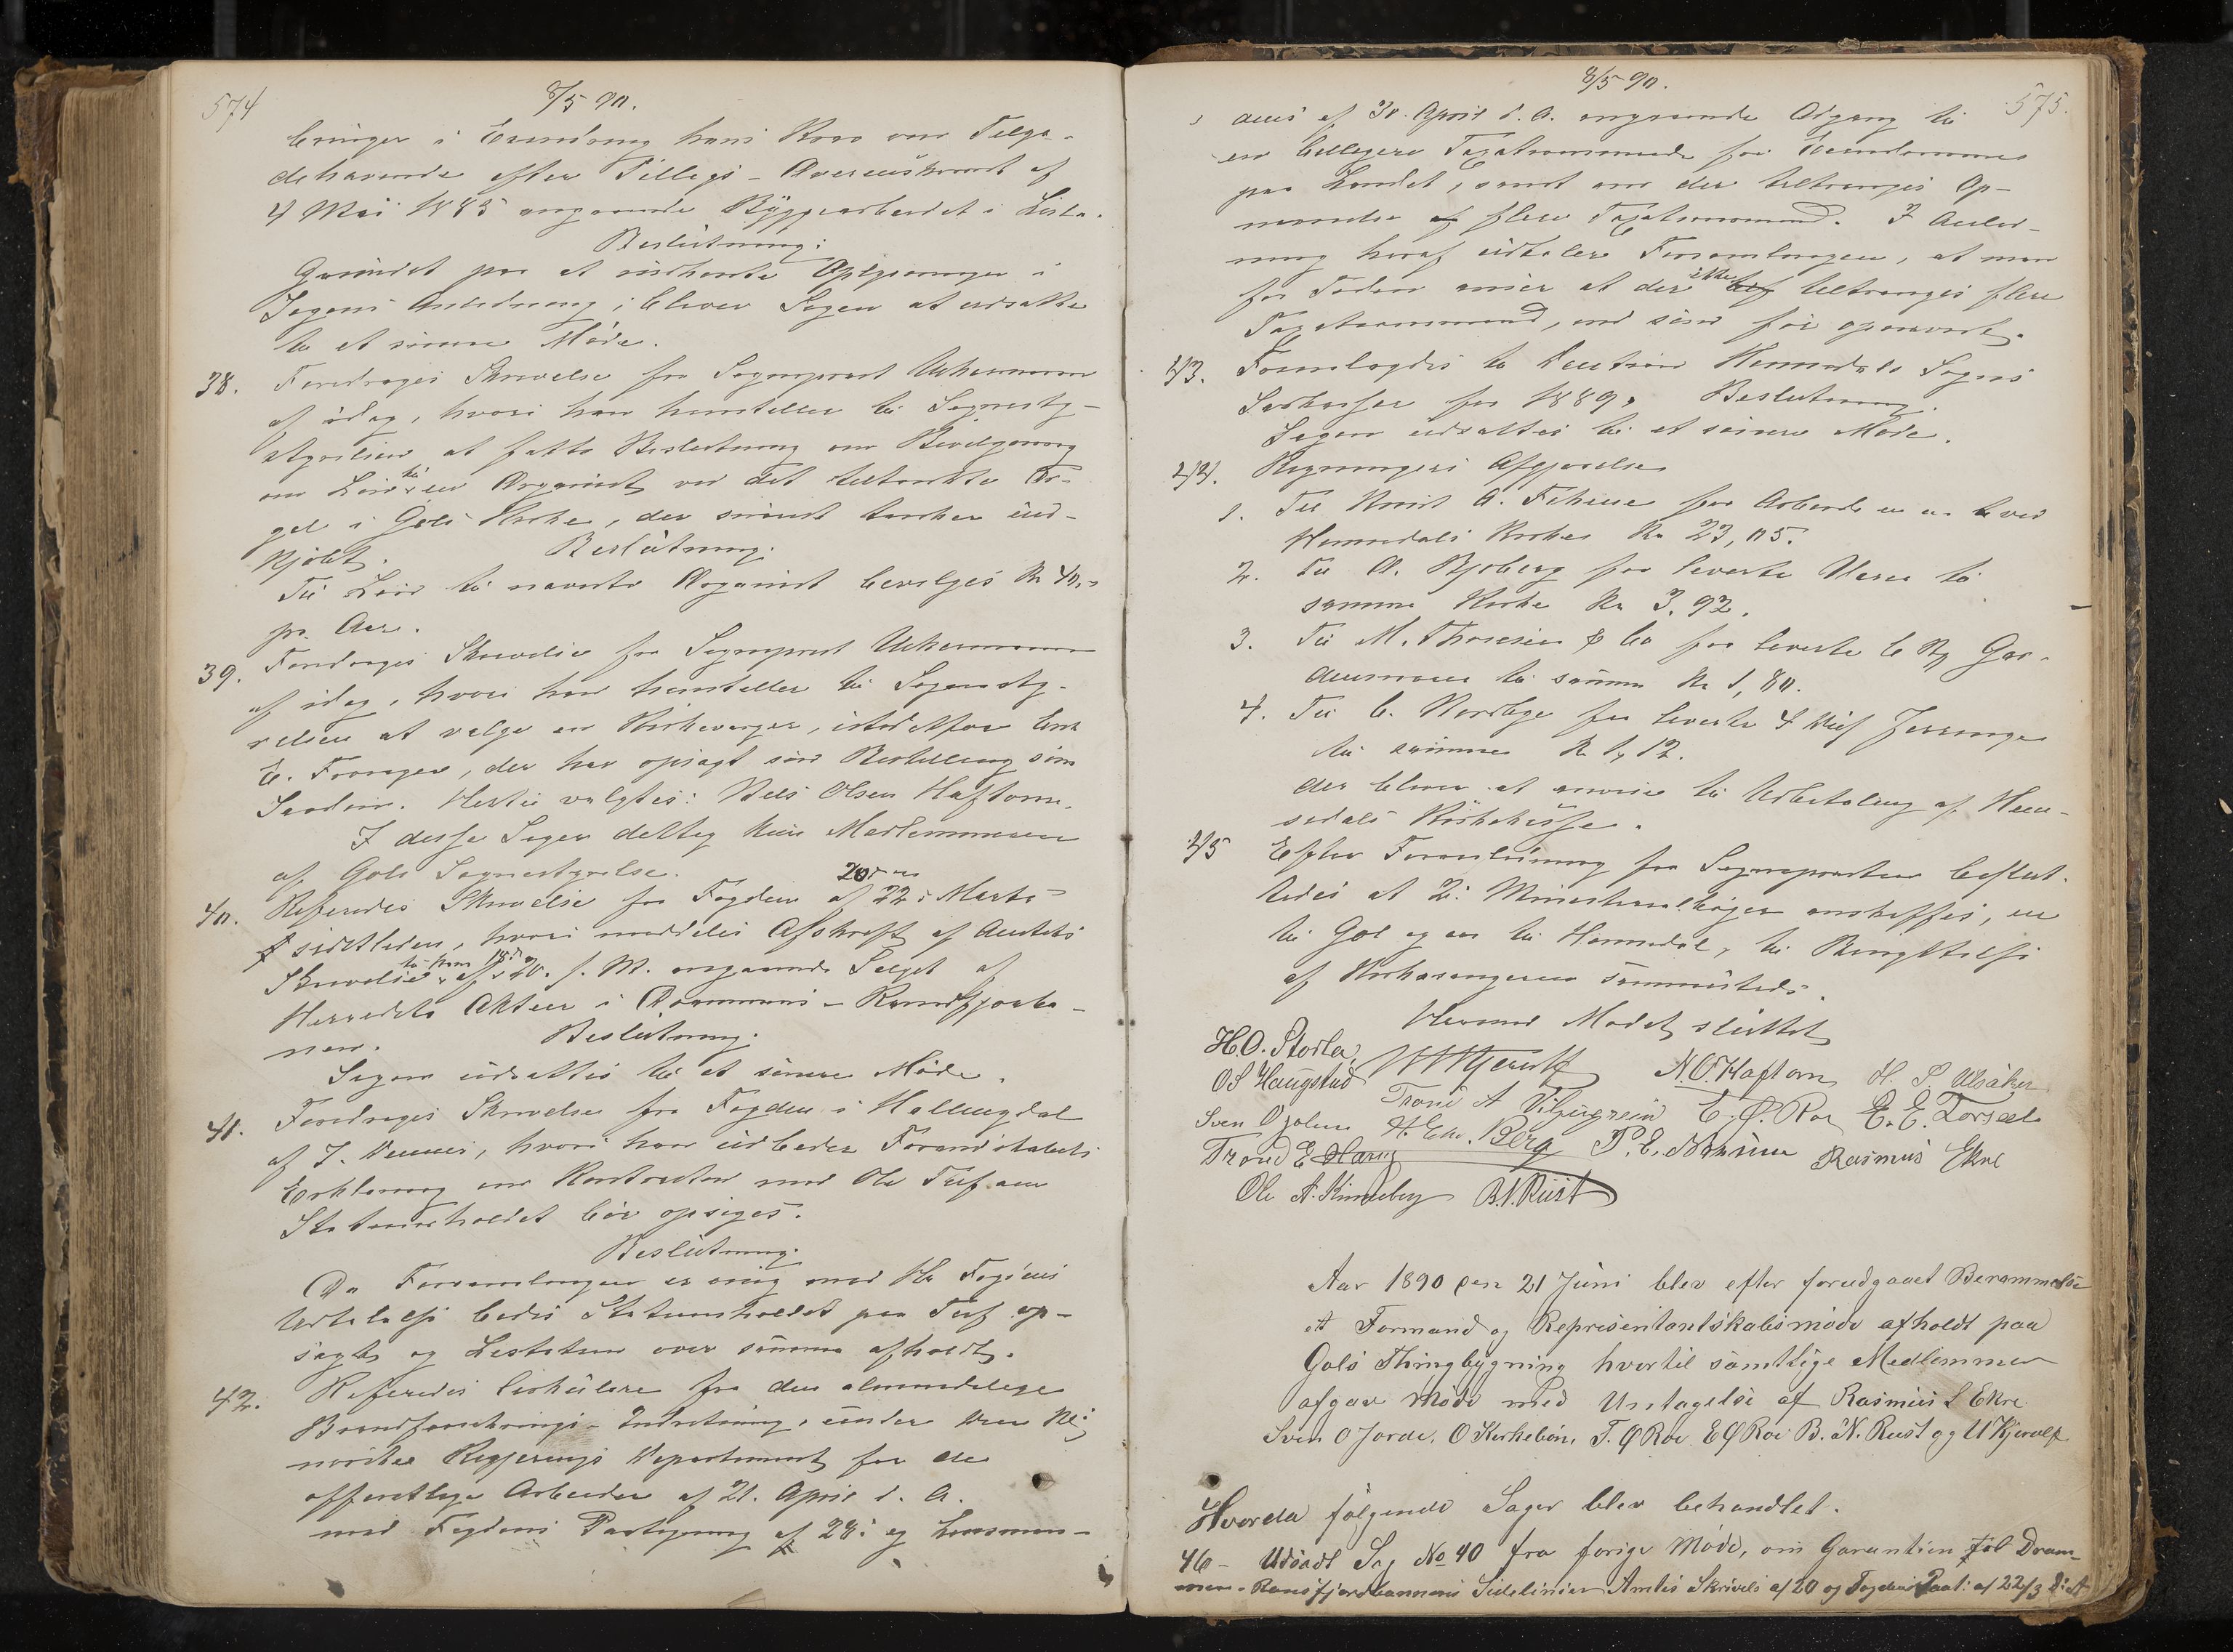 574
8/5 90.
bringer i Erindring hans Krav om Tilgo-
dehavende efter Tillegs-Overenskomst af
4 Mai 1885 angaaende Byggearbeidet i Lista.
Beslutning:
Grundet paa at indhente Oplysninger i
Sagens Anledning, bliver Sagen at udsætte
til et senere Møde.
38. Foredroges Skrivelse fra Sogneprest Uchermann
af idag, hvori han henstiller til Sognesty-
relsen at fatte Beslutning om Bevilgning
om Løn til en Organist ved det tiltænkte Or-
gel i Gols Kirke, der snart tænkes ind-
kjøbt. Beslutning:
Til Løn til nævnte Organist bevilges Kr 40,-
pr. Aar.
39. Foredroges Skrivelse fra Sogneprest Uchermann
af idag, hvori han henstiller til Sognesty-
relsen at vælge en Kirkeverger, istedetfor
E. Trøgen, der har opsagt sin Bestilling som
Saadan. Hertil valgtes: Nels Olsen Haftorn.
I disse Sager deltog kun Medlemmerne
af Gols Sognestyrelse.
40. Refereredes Skrivelse fra Fogden af 22 i Marts
sidstleden, hvori meddeles Afskrift af Amtets
Skrivelse til ham af 20. s. M. angaaende Salget af
Herredets Aktier i Drammens-Randsfjordba-
nen. Beslutning:
Sagen udsattes til et senere Møde.
41. Foredroges Skrivelse fra Fogden i Hallingdal
af 7. dennes, hvori han udbeder Formandskabets
Erklæring om Kontrakten med Ole Tuf om
Stationsholdet bør opsiges.
Beslutning:
Da Forsamlingen er enig med Hr Fogdens
Udtalelse bedes Stationsholdet paa Tuf op-
sagt og Licitation over samme afholdt.
42. Refereredes Cirkulære fra den almindelige
Brandforsikrings-Indretning, under den Kgl
norske Regjerings Departement for de
offentlige Arbeider af 21. April d. A.
med Fogdens Paategning af 28: og Lensman-
8/5 90.
575.
dens af 30. April d. A. angaaende Adgang til
en billigere Taxationsmaade for Eiendomme
paa Landet, samt om der tiltrænges Op-
nævnelse af flere Taxationsmænd. I Anled-
ning heraf udtaler Forsamlingen, at man
for Tiden anser at der ikke tiltrænges flere
Taxationsmænd, end som før opnævnt.
43. Fremlagdes til Decision Hemsedals Sogns
Skolekasse for 1889. Beslutning.
Sagen udsattes til et senere Møde.
44. Regningers Afgjørelse
1. Til Knut A. Fekene for Arbeide m. m. ved
Hemsedals Kirke Kr 23,05.
2. Til A. Bjøberg for leverte Varer til
samme Kirke Kr 3,92.
3. Til M. Thoresen & Co for leverte 6 Kg Gar-
dinsnorer til samme Kr 1,80.
4. Til C. Nordbye for leverte 4
til samme Kr 1,12.
der bliver at anvise til Udbetaling af Hem-
sedals Kirkekasse.
45 Efter Foranledning fra Sognepresten beslut-
tedes at 2: Ministerialbøger anskaffes, en
til Gol og en til Hemsedal, til Benyttelse
af Kirkesangeren sammesteds.
Hermed Mødet sluttet
H.O. Storla, N.O. Haftorn H. S. Ulsaker
O S Haugstad Trond A E. Ø. Roe E. E. Torset
Sven O Jolen H. Chr. Berg P. E. Rasmus Ekre
Trond E
Ole A. Kinneberg B. N. Rust
Aar 1890 den 21 Juni blev efter forudgaaet Berammelse
et Formand og Representantskabsmøde afholdt paa
Gols Thingbygning hvortil samtlige Medlemmer
afgav Møde med Untagelse af Rasmus S Ekre
Sven O Jorde, O Kirkebøn, T. Ø Roe E Ø Roe B. N. Rust og U Kjerulf
Hvorda følgende Sager blev behandlet.
46- Udsadt Sag No 40 fra forige Møde, om Garantien for Dram-
men-Ransfjordbannens Sidelinier Amtets Skrivels af 20 og Fogdens Paat: af 22/3 d: A